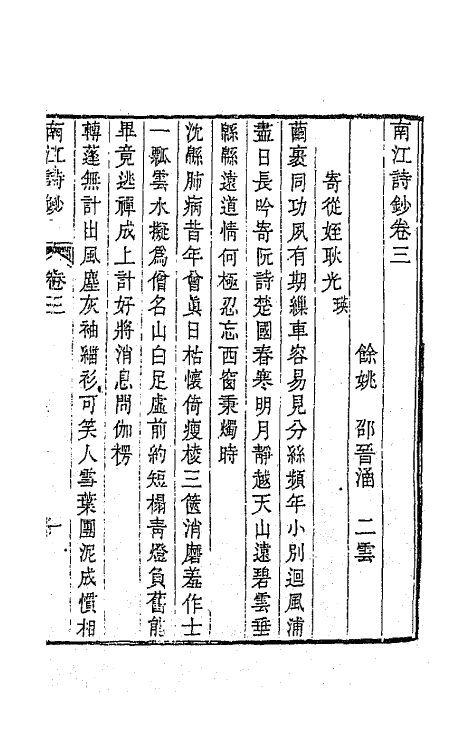 南江詩鈔卷三
餘姚 邵晉涵 二雲
寄從姪耿光瑛
繭裹同功夙有期繅車容易見分絲頻年小別迴風浦
盡日長吟寄阮詩楚國春寒明月靜越天山遠碧雲垂
緜緜遠道情何極忍忘西窗秉燭時
沈緜肺病昔年曾眞日枯懷倚瘦棱三篋消磨羞作士
一瓢雲水擬爲僧名山白足虛前約短榻靑燈負舊能
畢竟逃禪成上計好將消息問伽楞
轉蓬無計出風塵灰袖緇衫可笑人雪葉團泥成慣相
南江詩鈔 卷三 一